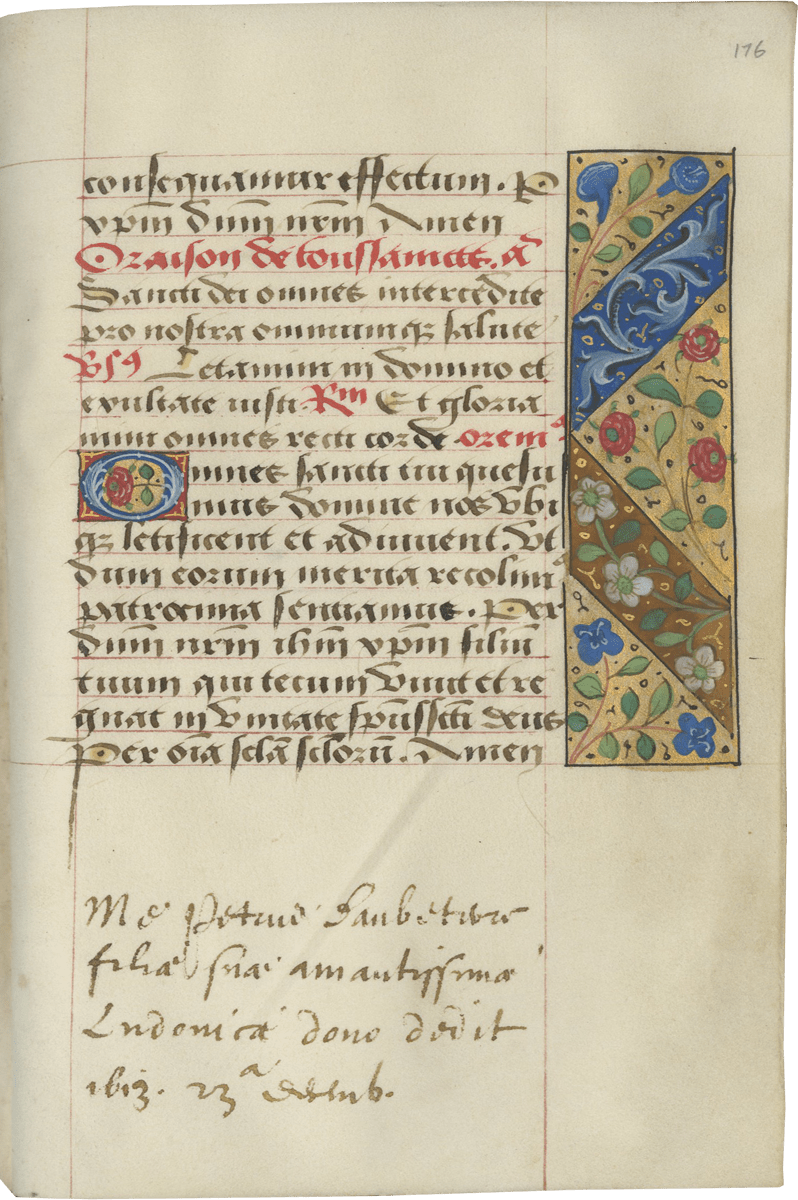 176
consequamur effectum. P
xp̄m dn̄m nr̄m Amen
Oraison de tous sainctz. an̄
Sancti dei omnes intercedite
pro nostra omniumq; salute
Vsꝰ Letamini in domino et
exultate iusti. Rm̄ Et gloria
mini omnes recti corde orem
Omnes sancti tui quesu
mus domine nos vbi
q; letificent et adiuuent. vt
dum eorum merita recolimꝰ
patrocinia sentiamus. Per
dn̄m nr̄m ihm̄ xp̄m filiū
tuum qui tecum viuit et re
gnat in vnitate sp̄us sc̄ti deus
Per oīa sc̄la sc̄lorū. Amen
Me Petrus Daubeterre
filiæ suæ amantissimæ
Ludovicæ dono dedit
1613. 23a decemb.